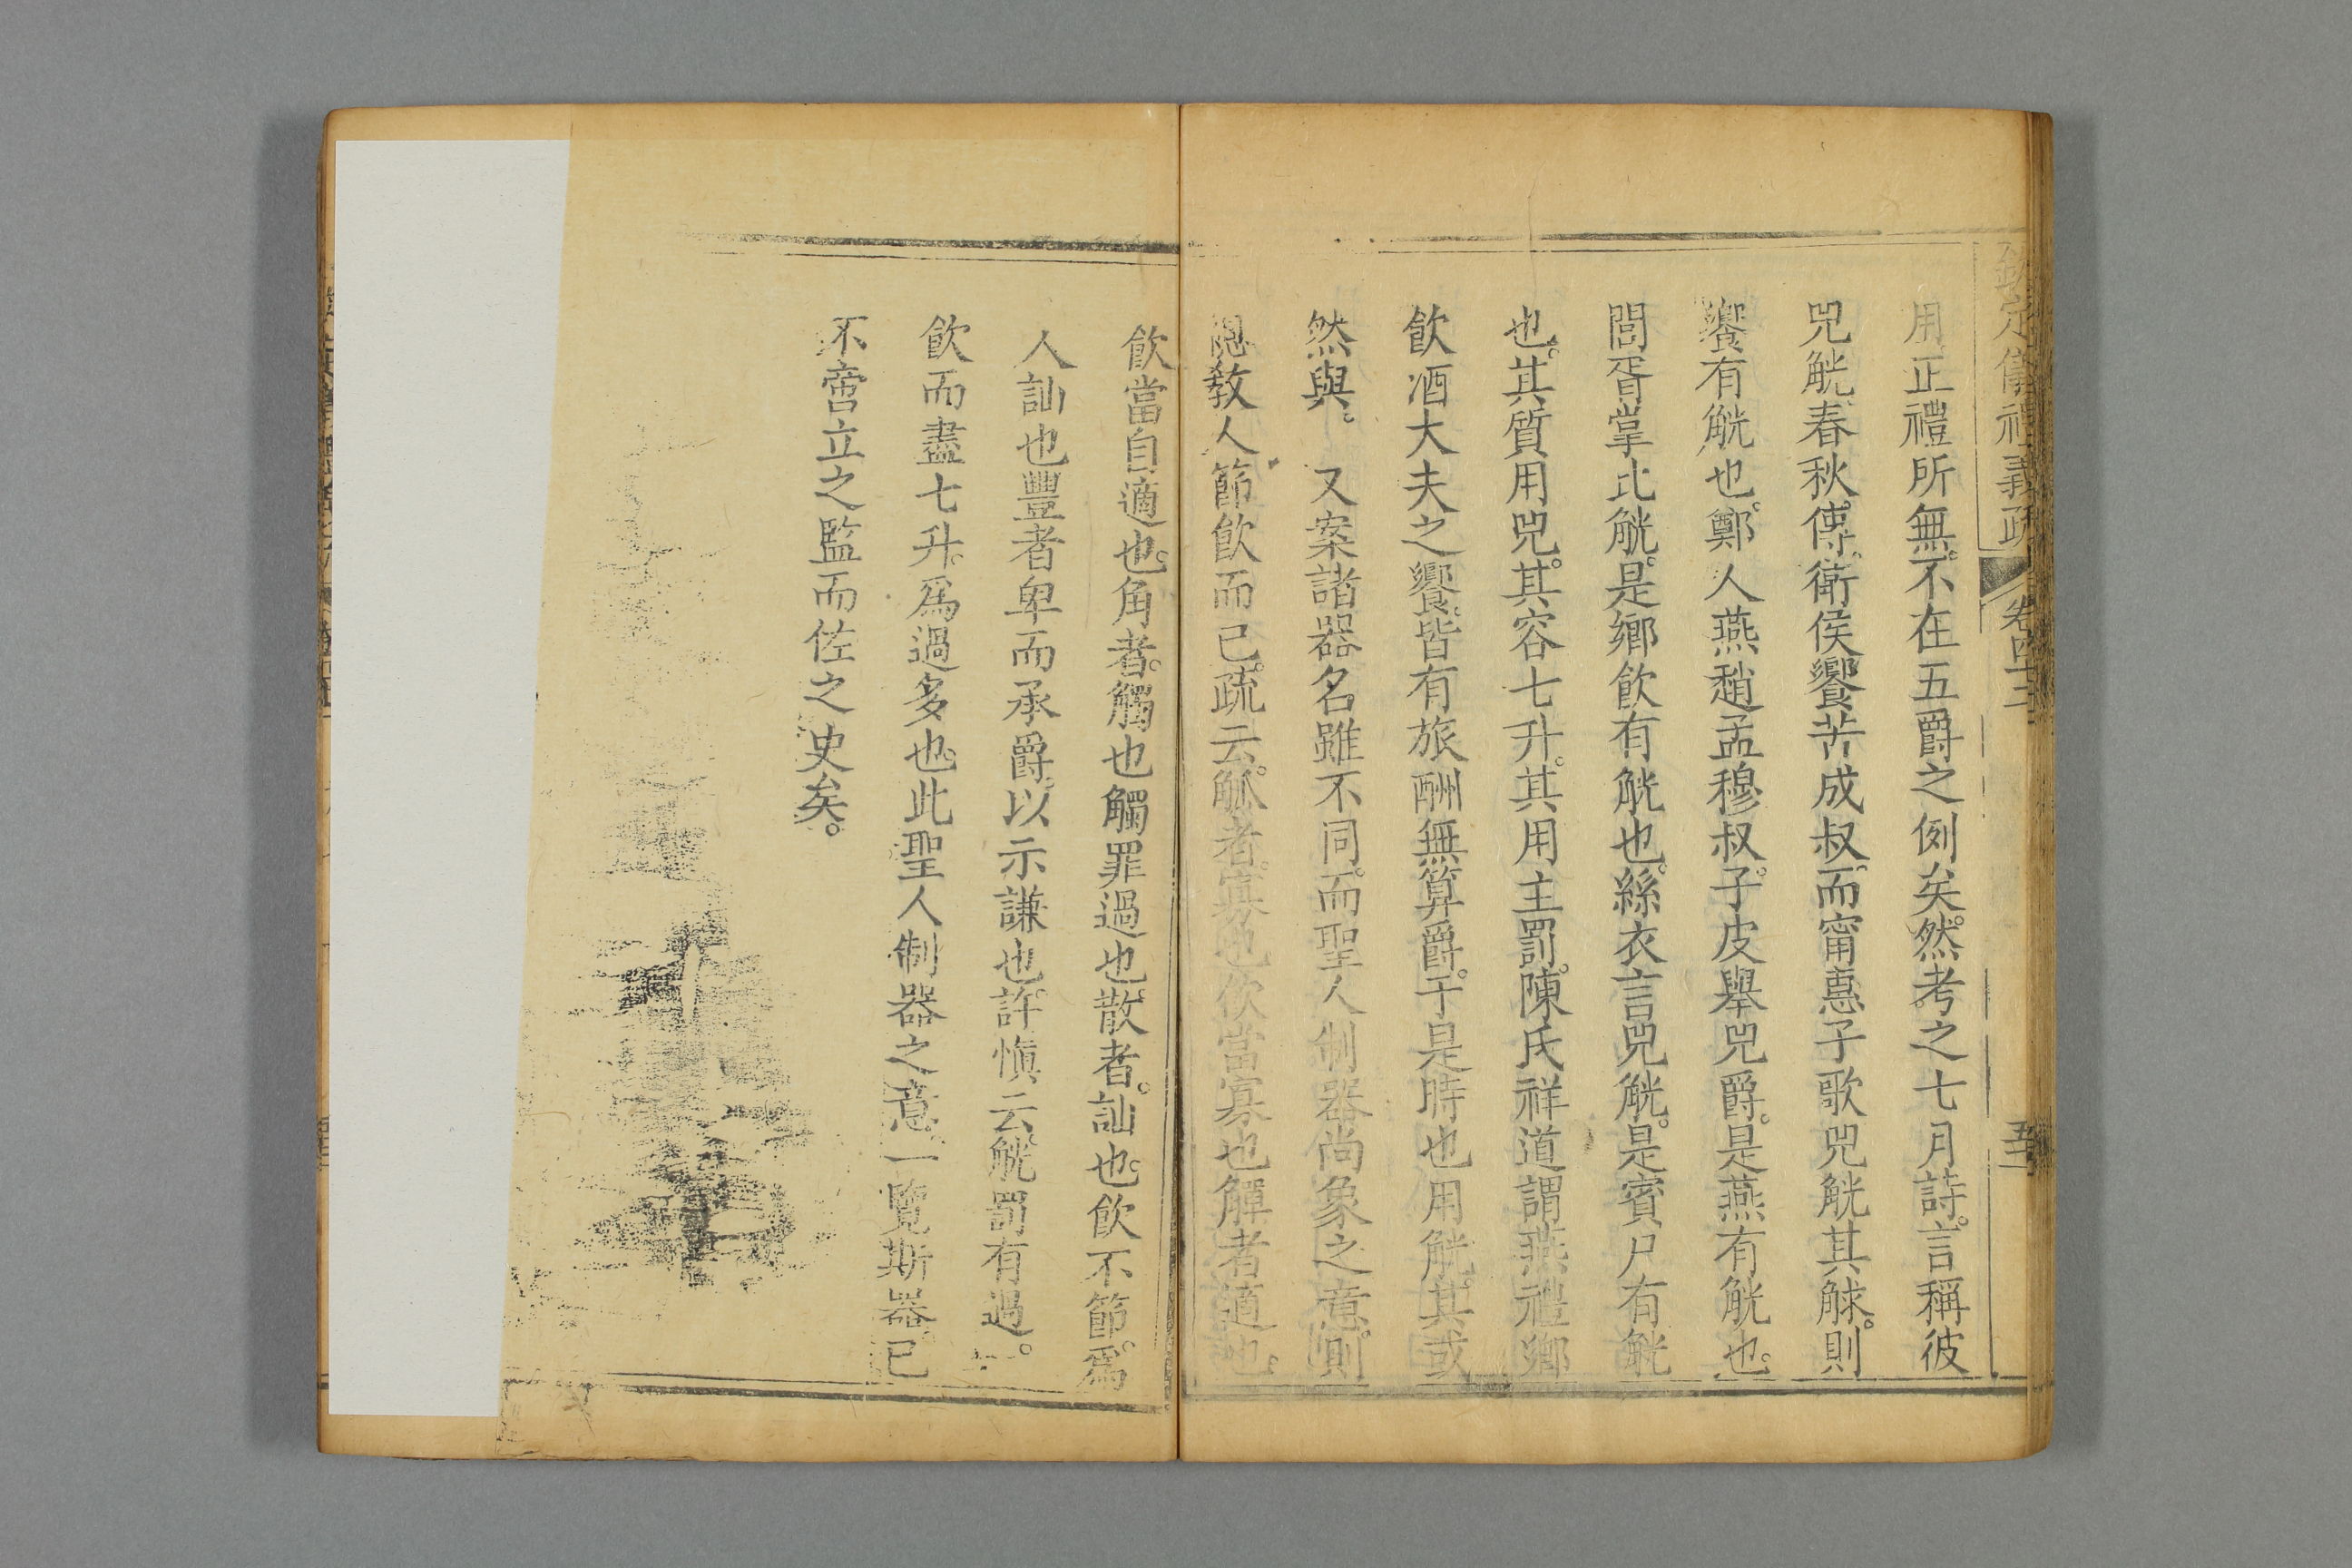 欽定儀禮義疏 卷四十三 五十一
用。正禮所無。不在五爵之例矣。然考之七月詩。言稱彼
兕觥。春秋傳。衛侯饗苦成叔。而甯惠子歌兕觥其觩。則
饗有觥也。鄭人燕趙孟穆叔。子皮舉兕爵。是燕有觥也。
閭胥掌比觥。是鄉飲有觥也。絲衣言兕觥。是賓尸有觥
也。其質用兕。其容七升。其用主罰。陳氏祥道謂燕禮鄉
飲酒大夫之饗。皆有旅酬無算爵。于是時也用觥。其或
然與。 又案諸器名雖不同。而聖人制器尚象之意。則
教人節飲而已。疏云。觚者。寡也飲當寡也觶者適也。
飲當自適也。角者。觸也觸罪過也。散者。訕也。飲不節。爲
人訕也豐者卑而承爵以示謙也。許愼云觥罰有過。
飲而盡七升。爲過多也。此聖人制器之意。一覽斯器。已
不啻立之監而佐之史矣。